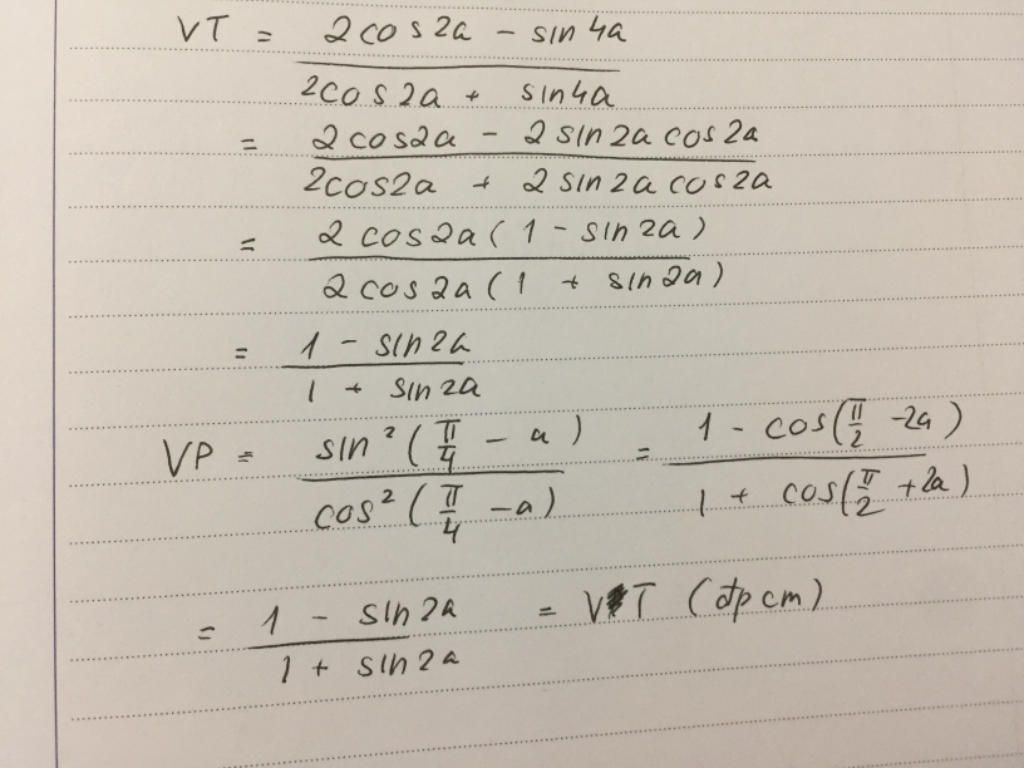 VT = 2cos2a - sin4a / 2cos2a + sin4a
= 2cos2a - 2sin2a cos2a / 2cos2a + 2sin2a cos2a
= 2cos2a(1 - sin2a) / 2cos2a(1 + sin2a)
= 1 - sin2a / 1 + sin2a
VP = sin²(π/4 - a) / cos²(π/4 - a) = 1 - cos(π/2 - 2a) / 1 + cos(π/2 + 2a)
= 1 - sin2a / 1 + sin2a = VT (đpcm)